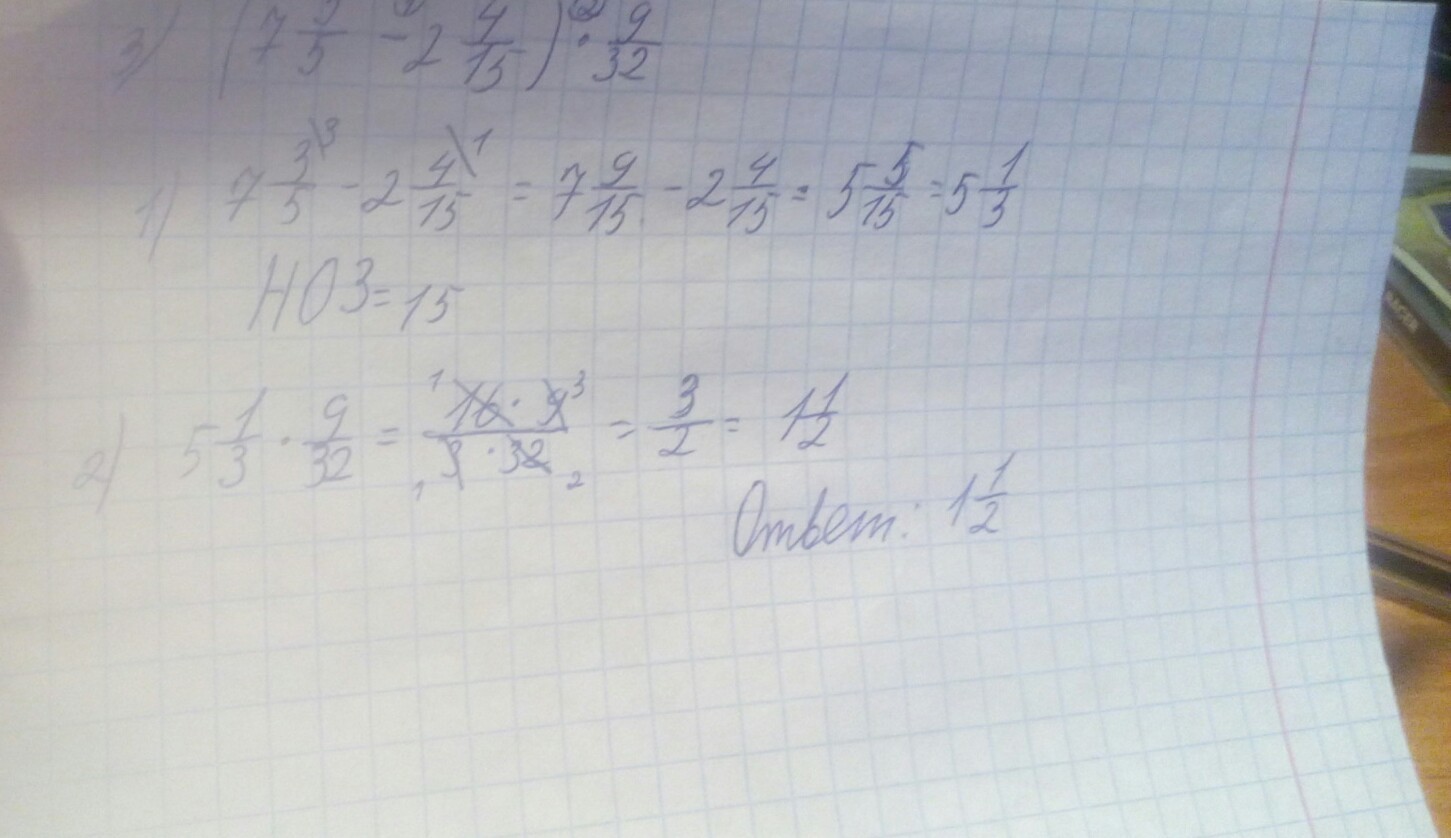 3) (7 3/5 - 2 4/15) · 9/32
1) 7 3\3/5 - 2 4\1/15 = 7 9/15 - 2 4/15 = 5 5/15 = 5 1/3
НОЗ = 15
2) 5 1/3 · 9/32 = 16 · 9/3 · 32 = 3/2 = 1 1/2
Ответ: 1 1/2